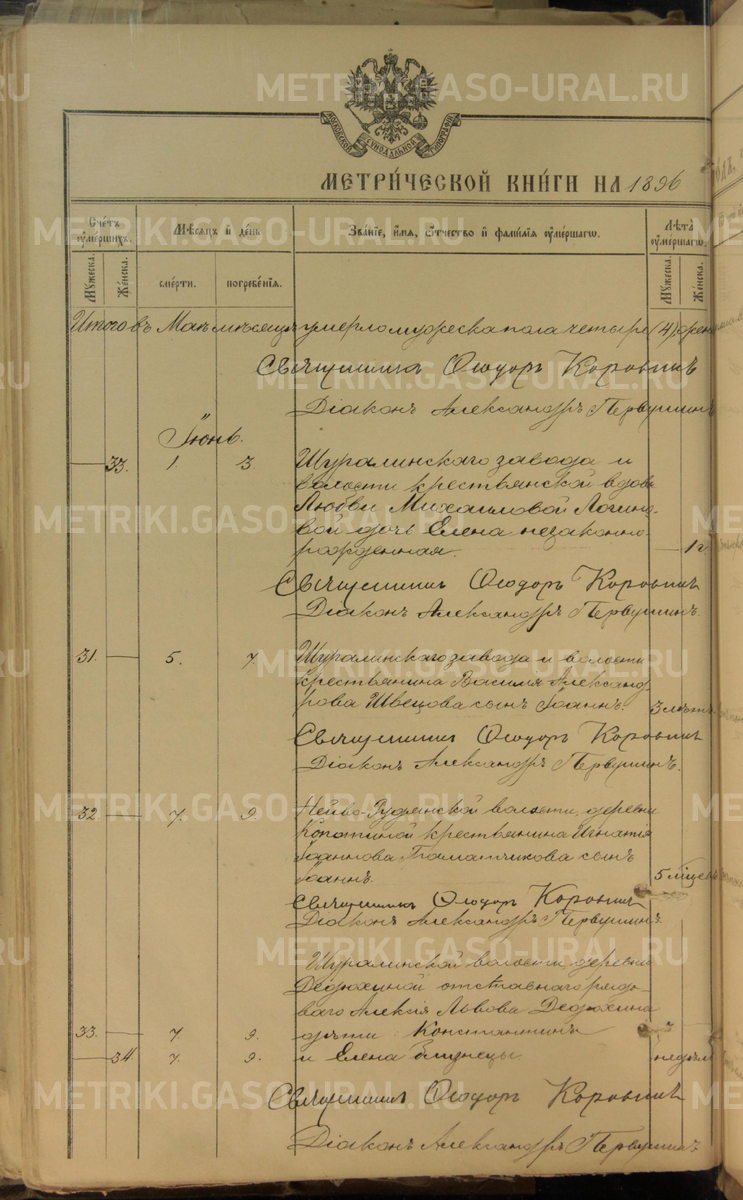 МОСКОВСКОЙ СѴНОДАЛЬНОЙ ТИПОГРАФІИ
МЕТРИ́ЧЕСКОЙ КНИ́ГИ НА 1896
Сче́тъ ᲂу҆ме́ршихъ.
Мѣ́сяцъ и҆ де́нь
Зва́нїе, и҆́мя, ѻ҆́тчество и҆ фами́лїя ᲂу҆ме́ршагѡ.
Лѣ́та ᲂу҆ме́ршагѡ.
Му́жеска.
Же́нска.
сме́рти.
погребе́нїя.
Му́жеска.
Же́нска.
Итого въ Маѣ мѣсяцѣ умерло мужеска пола четыре (4) жен
Священникъ Ѳеодоръ Коровинъ
Діаконъ Александръ Первушинъ
Іюнь.
33. 1. 3. Шуралинскаго завода и
волости крестьянской вдовы
Любви Михаиловой Логино-
вой дочь Елена незаконно-
рожденная. 1 г
Священникъ Ѳеодоръ Коровинъ
Діаконъ Александръ Первушинъ.
31. 5. 7. Шуралинскаго завода и волости
крестьянина Василія Александ-
рова Швецова сынъ Іоаннъ. 3 лѣтъ
Священникъ Ѳеодоръ Коровинъ
Діаконъ Александръ Первушинъ.
32 7. 9. Нейво-Рудянской волости, деревни
крестьянина Игнатія
Іоаннова сынъ
Іоаннъ. 5 мѣсяц
Священникъ Ѳеодоръ Коровинъ
Діаконъ Александръ Первушинъ.
Шуралинской волости, деревни
Дедюхиной отставнаго рядо-
ваго Алексія Львова Дедюхина
33. 7. 9. дѣти: Константинъ 3
34 7. 9. и Елена близнецы недѣли
Священникъ Ѳеодоръ Коровинъ
Діаконъ Александръ Первушинъ
METRIKI.GASO-URAL.RU